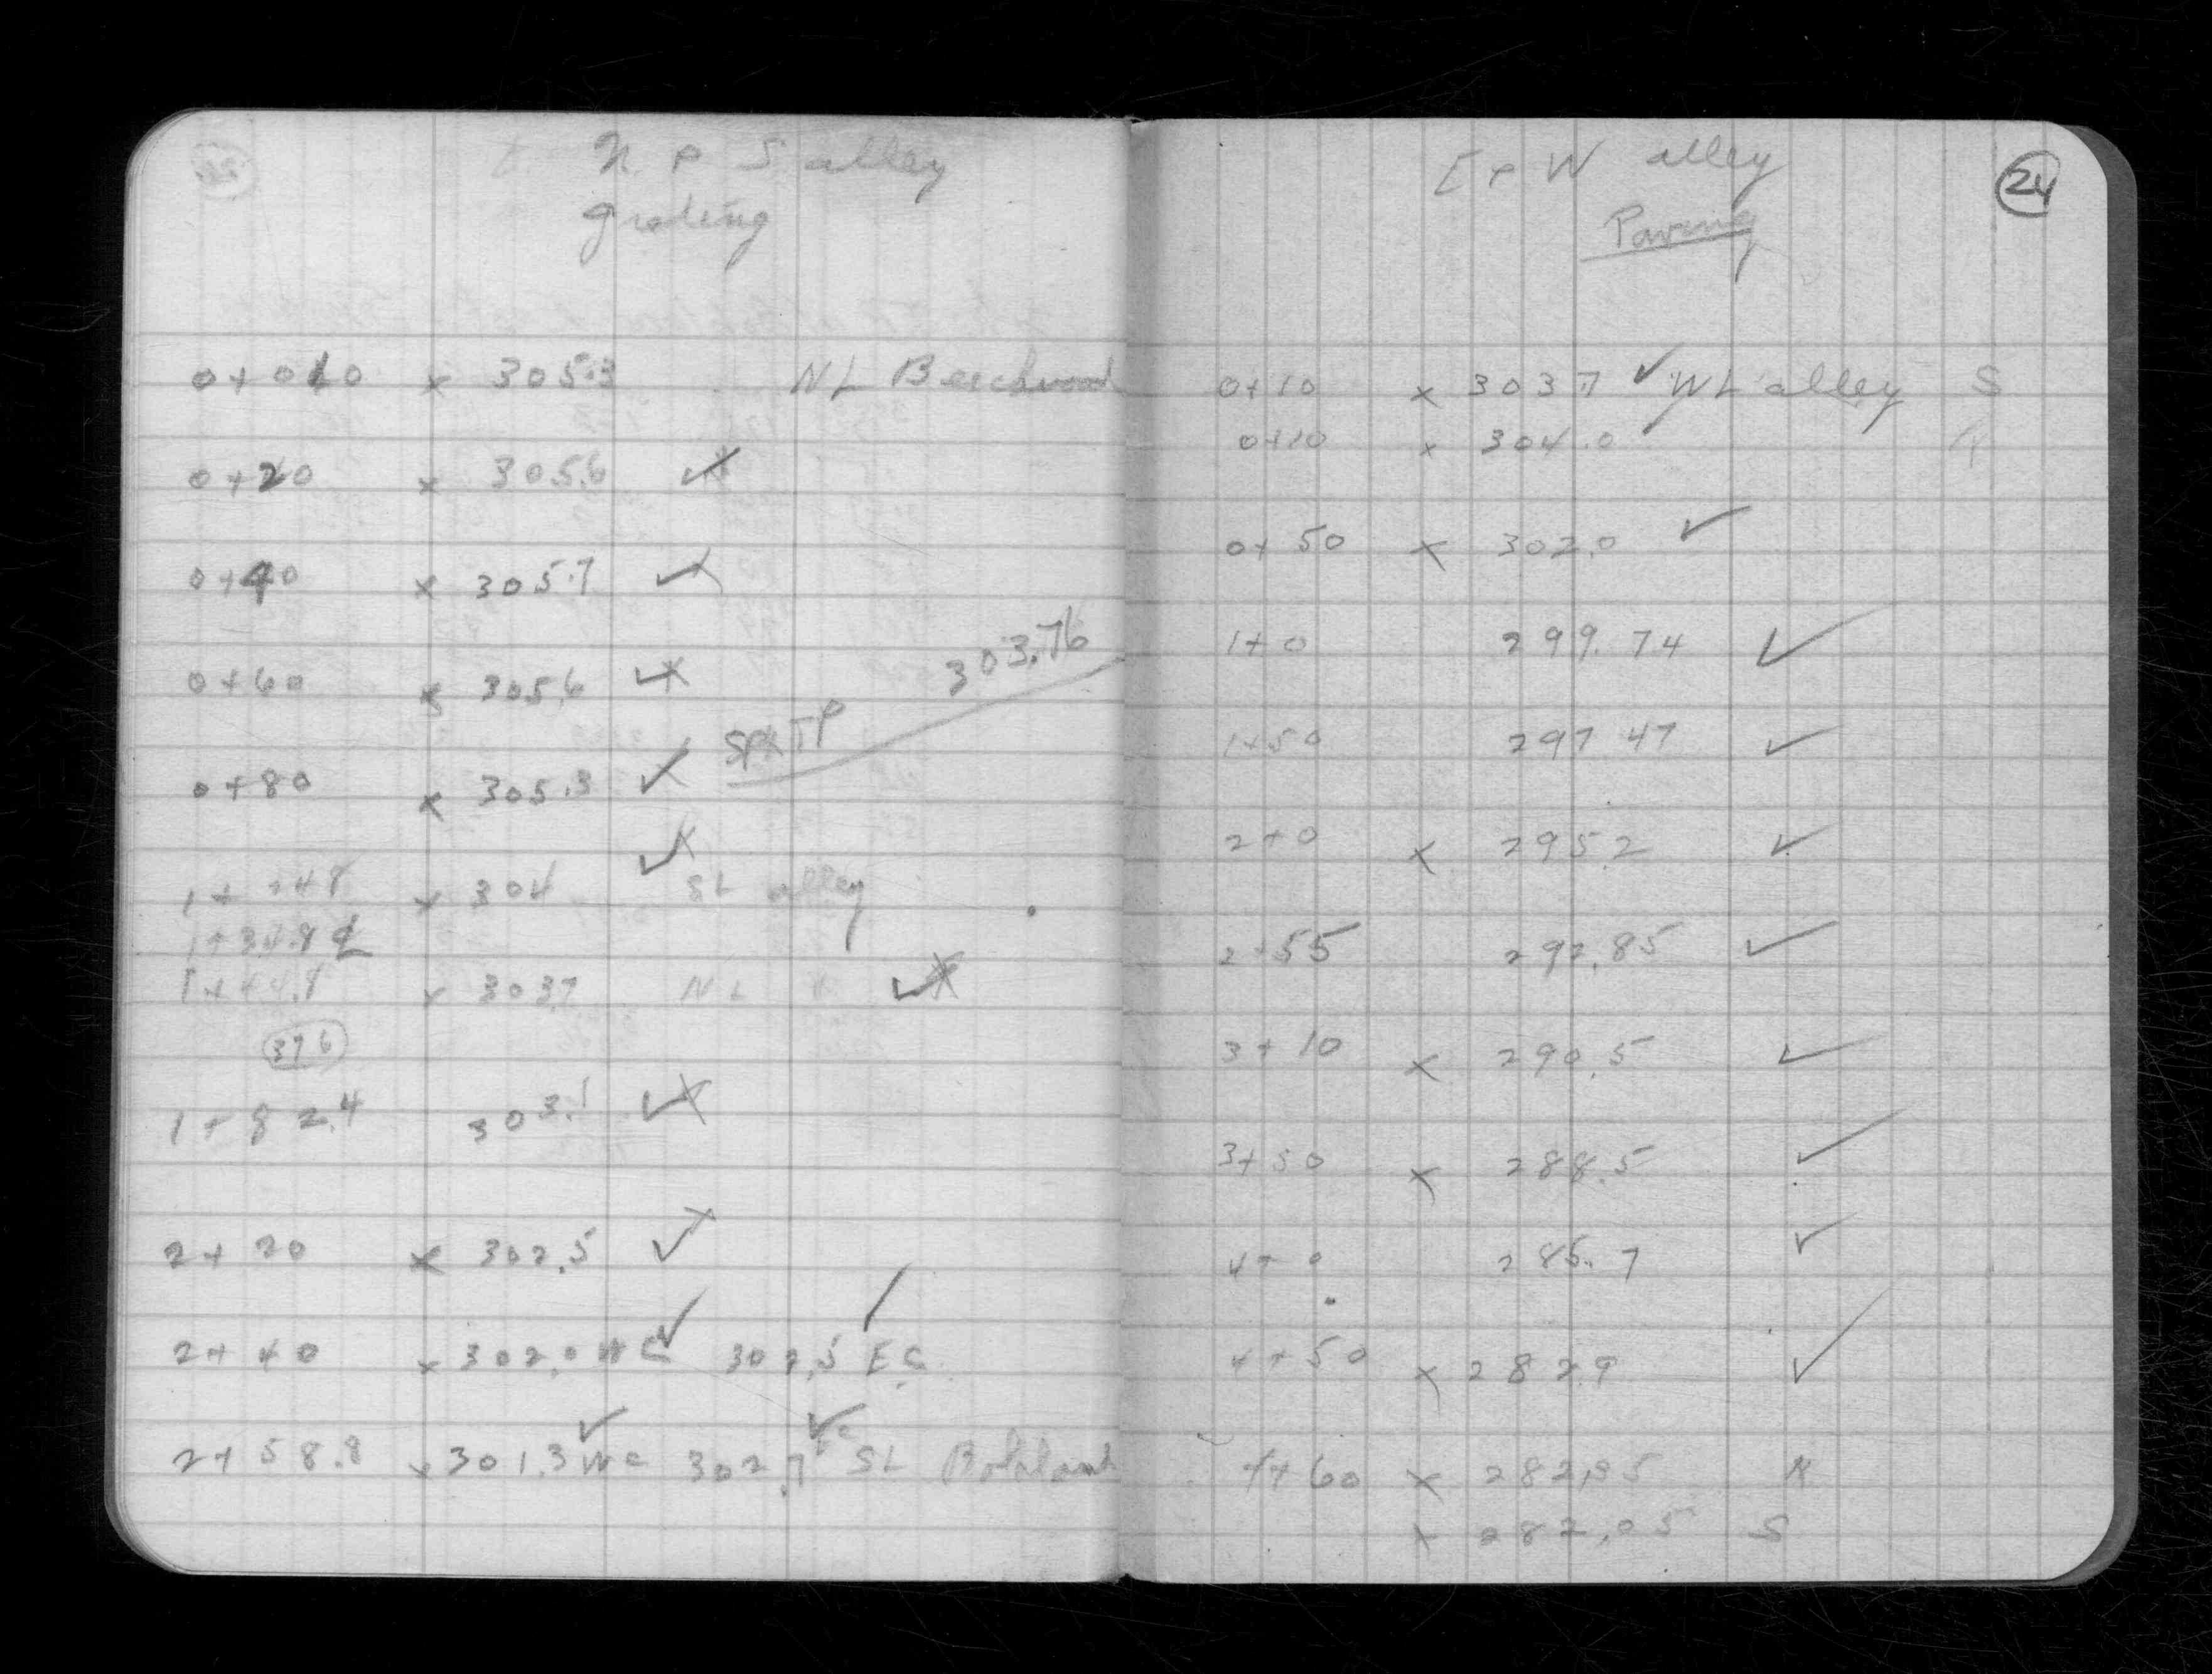 N P S alley
grading
0+010 x 305.3 NL Beechwood
0+20 x 305.6 ✓x
0+40 x 305.7 ✓x
303.76
0+60 x 305.6 ✓x
SPK TP
0+80 x 305.3 ✓x
1+24.8 x 304 ✓x SL alley
1+34.8 ℄
1+44.8 x 303.7 NL " ✓x
37.6
1+82.4 303.1 ✓x
2+20 x 302.5 ✓x
2+40 x 302.0 WC ✓ 302.5 EC
2+58.8 x 301.3 WC ✓ 302.7 EC ✓ SL
E P W alley
24
Paving
0+10 x 303.7 ✓ WL alley S
0+10 x 304.0
0+50 x 302.0 ✓
1+0 299.74 ✓
1+50 297.47 ✓
2+0 x 295.2 ✓
2+55 292.85 ✓
3+10 x 290.5 ✓
3+50 x 288.5 ✓
4+0 285.7 ✓
4+50 x 282.9 ✓
4+60 x 282.35 N
x 282.05 S